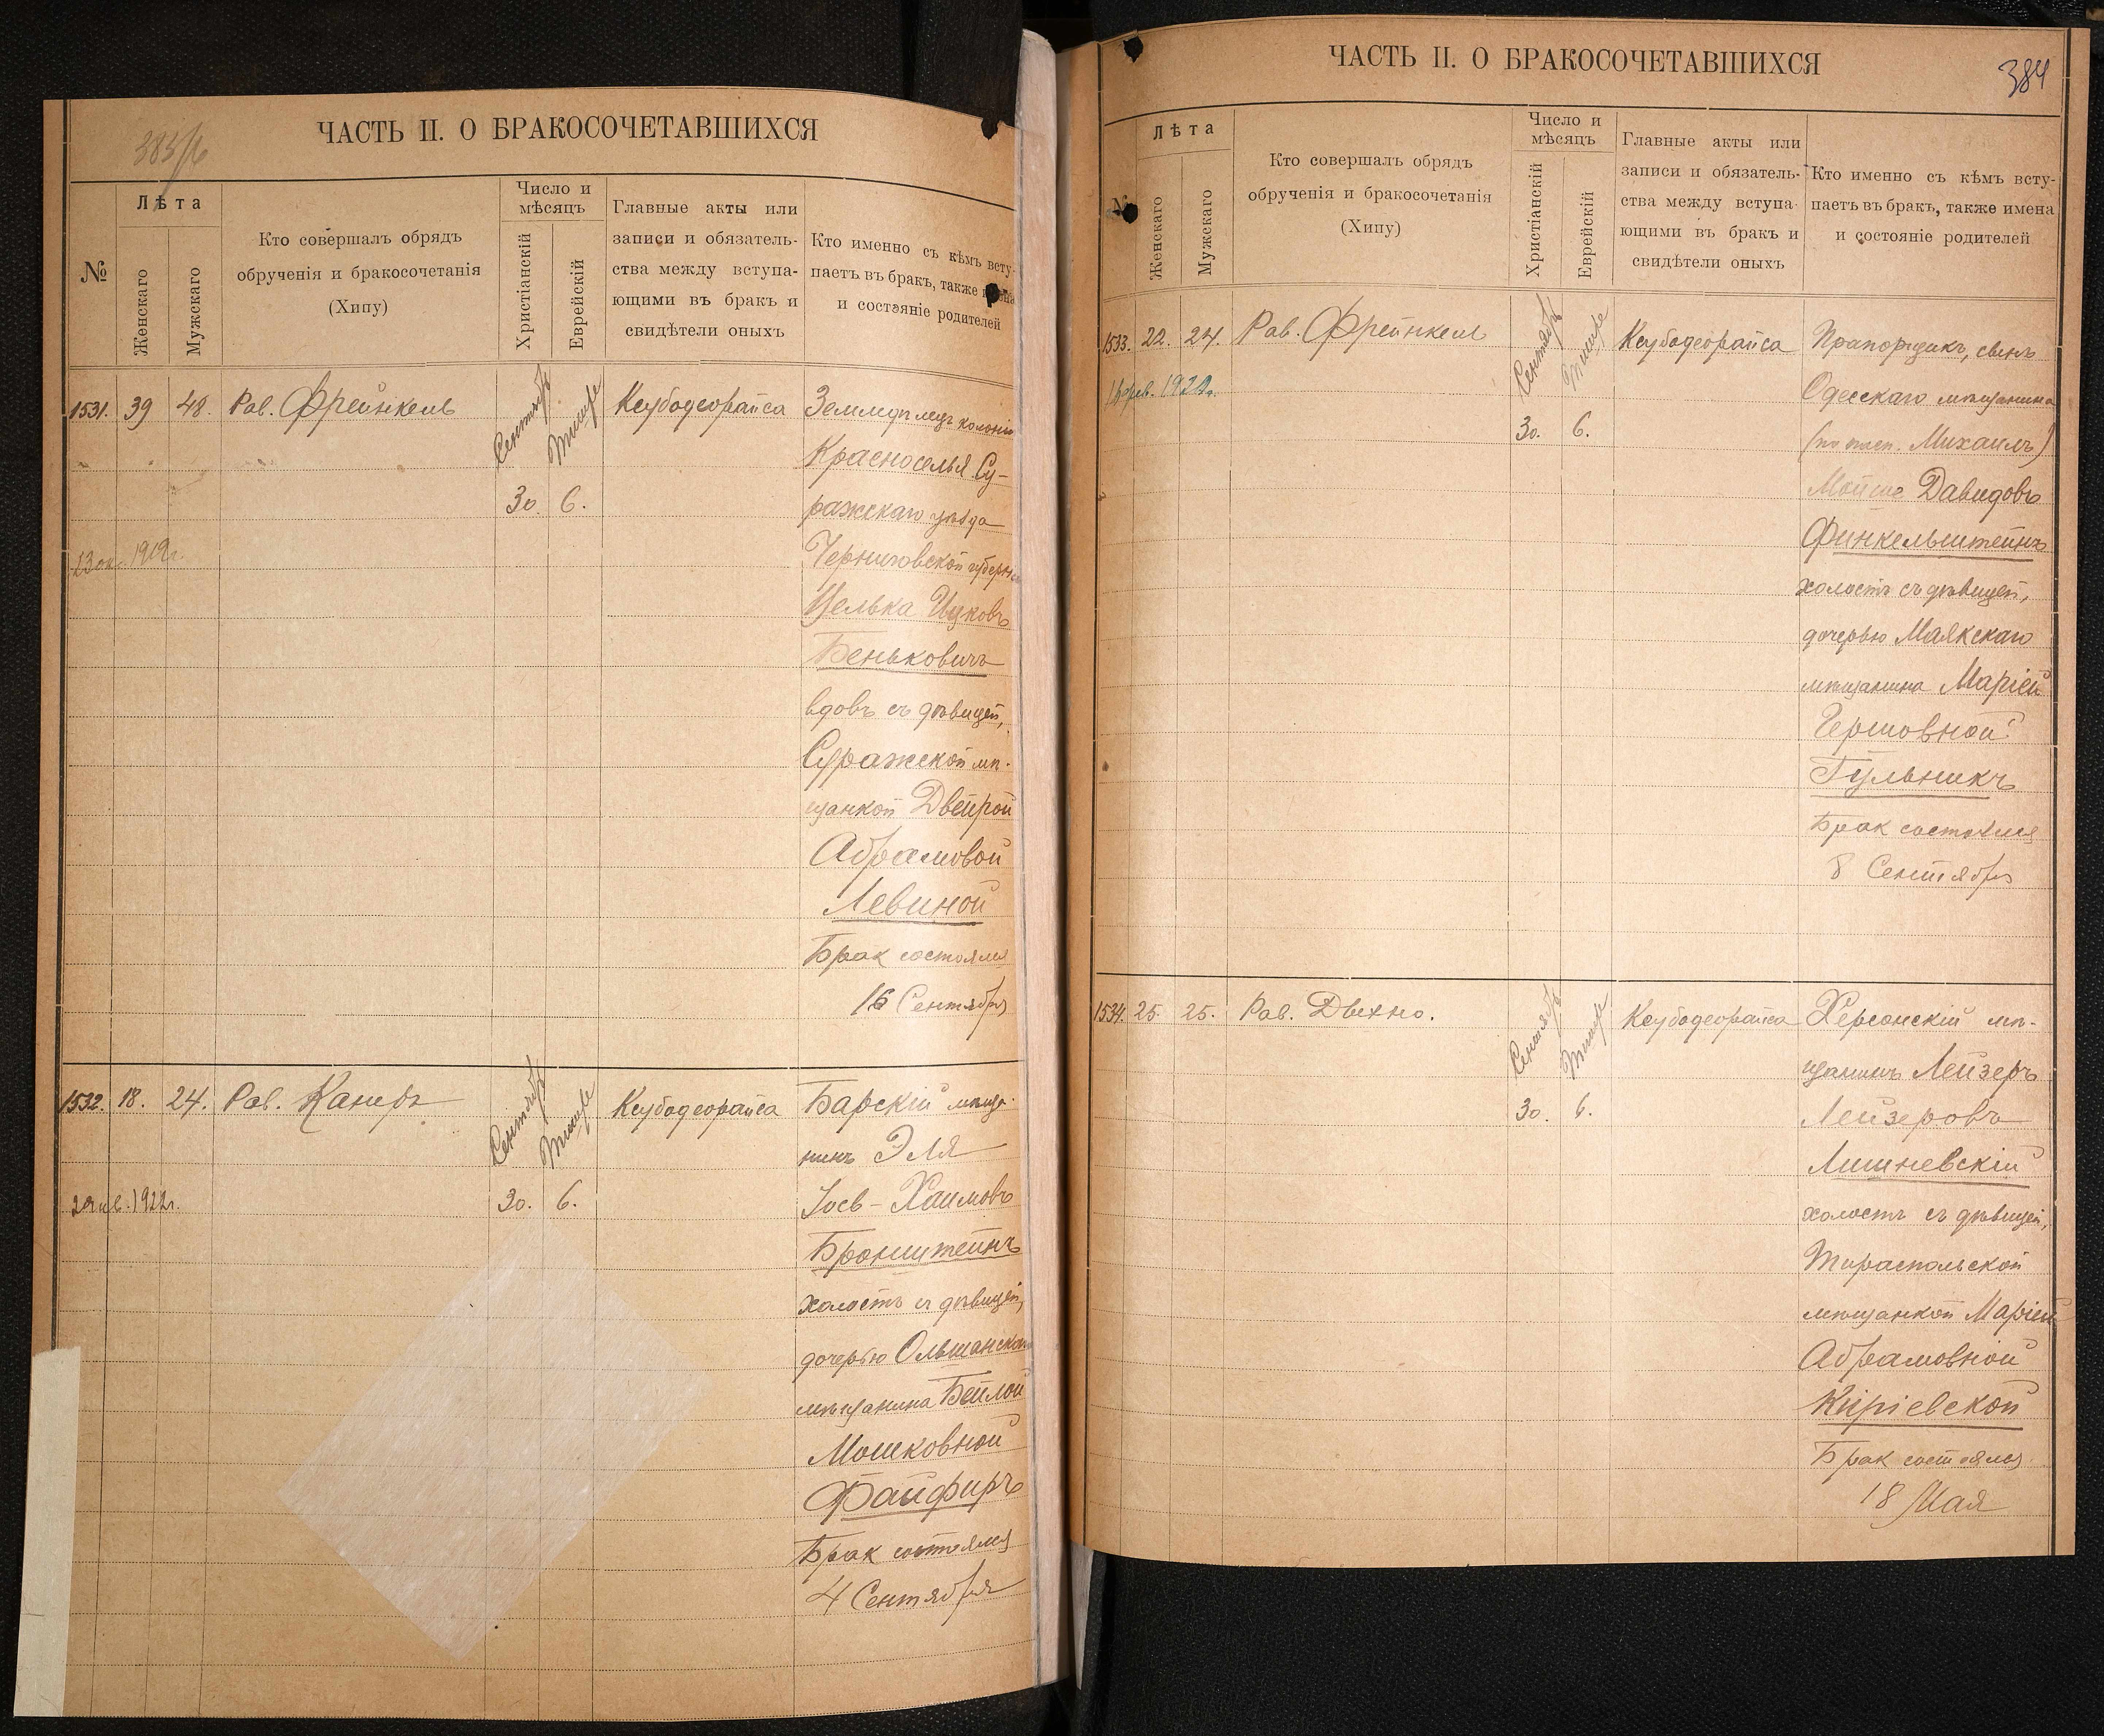 383/б
ЧАСТЬ II. О БРАКОСОЧЕТАВШИХСЯ
№
Лѣта
Женскаго
Мужскаго
Кто совершалъ обрядъ
обрученія и бракосочетанія
(Хипу)
Число и
мѣсяцъ
Христіанскій
Еврейскій
Главные акты или
записи и обязатель-
ства между вступа-
ющими въ бракъ и
свидѣтели оныхъ
Кто именно съ кѣмъ всту-
паетъ въ бракъ, также имена
и состояніе родителей
1531. 39 48. Рав. Фрейнкель Сентябрь Тишре Кеубодеорайса Земледѣлецъ колоніи
Красноселья Су-
30. 6. ражскаго уѣзда
1919г. Черниговской губерніи
Целька Ицковъ
Беньковичъ
вдовъ съ дѣвицей,
Суражской мѣ-
щанкой Двейрой
Абрамовой
Левиной
Брак состоялся
16 Сентября
1532. 18. 24. Рав. Канеръ Сентябрь Тишре Кеубодеорайса Барскій мѣща-
нинъ Эля
1922г. 30. 6. Іосв-Хаимовъ
Бронштейнъ
холостъ съ дѣвицей,
дочерью Ольшанскаго
мѣщанина Бейлой
Мошковной
Файфиръ
Брак состоялся
4 Сентября
384
ЧАСТЬ II. О БРАКОСОЧЕТАВШИХСЯ
№
Лѣта
Женскаго
Мужскаго
Кто совершалъ обрядъ
обрученія и бракосочетанія
(Хипу)
Число и
мѣсяцъ
Христіанскій
Еврейскій
Главные акты или
записи и обязатель-
ства между вступа-
ющими въ бракъ и
свидѣтели оныхъ
Кто именно съ кѣмъ всту-
паетъ въ бракъ, также имена
и состояніе родителей
1533. 22. 24. Рав. Фрейнкель Сентябрь Тишре Кеубодеорайса Прапорщикъ, сынъ
Одесскаго мѣщанина
30. 6. (по пасп. Михаилъ)
Мойше Давидовъ
Финкельштейнъ
холостъ съ дѣвицей,
дочерью Маякскаго
мѣщанина Маріей
Гершовной
Гульникъ
Брак состоялся
8 Сентября
1534. 25. 25. Рав. Двехно. Сентябрь Тишре Кеубодеорайса Херсонскій мѣ-
щанинъ Лейзеръ
30. 6. Лейзеровъ
Лишневскій
холостъ съ дѣвицей,
Тираспольской
мѣщанкой Маріей
Абрамовной
Киріевской
Брак состоялся
18 Мая